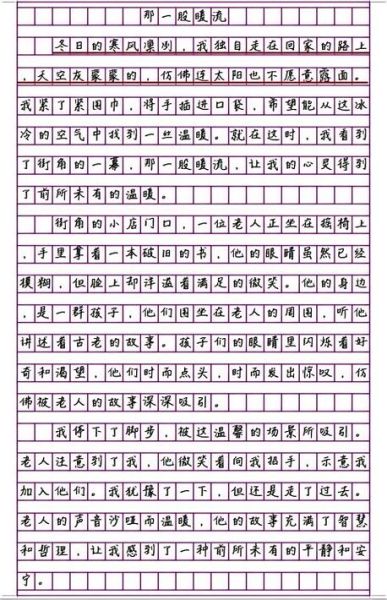 那一股暖流
冬日的寒风凛冽，我独自走在回家的路上
，天空灰蒙蒙的，仿佛连太阳也不愿意露面。
我紧了紧围巾，将手插进口袋，希望能从这冰
冷的空气中找到一丝温暖。就在这时，我看到
了街角的一幕，那一股暖流，让我的心灵得到
了前所未有的温暖。
街角的小店门口，一位老人正坐在摇椅上
，手里拿着一本破旧的书，他的眼睛虽然已经
模糊，但脸上却洋溢着满足的微笑。他的身边
，是一群孩子，他们围坐在老人的周围，听他
讲述着古老的故事。孩子们的眼睛里闪烁着好
奇和渴望，他们时而点头，时而发出惊叹，仿
佛被老人的故事深深吸引。
我停下了脚步，被这温馨的场景所吸引。
老人注意到了我，他微笑着向我招手，示意我
加入他们。我犹豫了一下，但还是走了过去。
老人的声音沙哑而温暖，他的故事充满了智慧
和哲理，让我感到了一种前所未有的平静和安
宁。